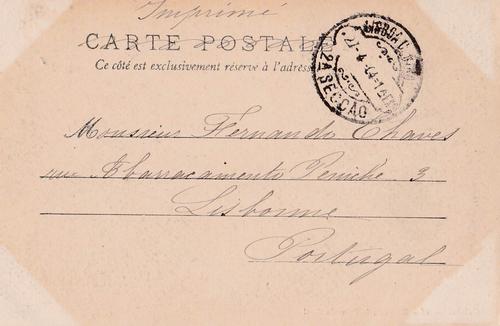 Imprimé
CARTE POSTALE
Ce côté est exclusivement réservé à l'adresse
2A SECCAO
Monsieur Fernando Chaves
rue Abarracamento Peniche 3
Lisbonne
Portugal